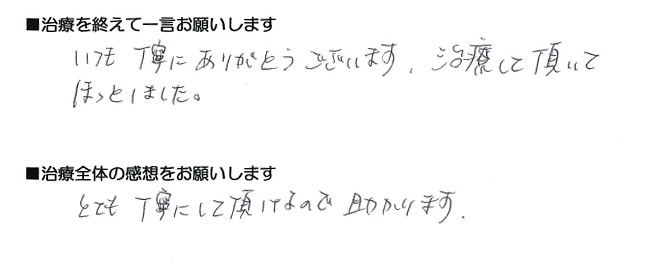 ■治療を終えて一言お願いします
いつも丁寧にありがとうございます。治療して頂いて
ほっとしました。
■治療全体の感想をお願いします
とても丁寧にして頂けるので助かります。